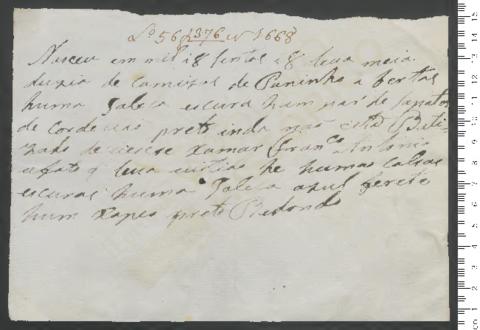 Nº 56 1376 1668
Nasceu em mil i8 sentos i 8 leva meia
duzia de camizas de Paninho a bertas
huma Jaleca escura hum par de sapatos
de preto inda não está Bati-
zado de xamar Franco Antonio
o fato q leva he humas calsas
escuras huma Jaleca azul ferete
hum xapeo preto Redondo